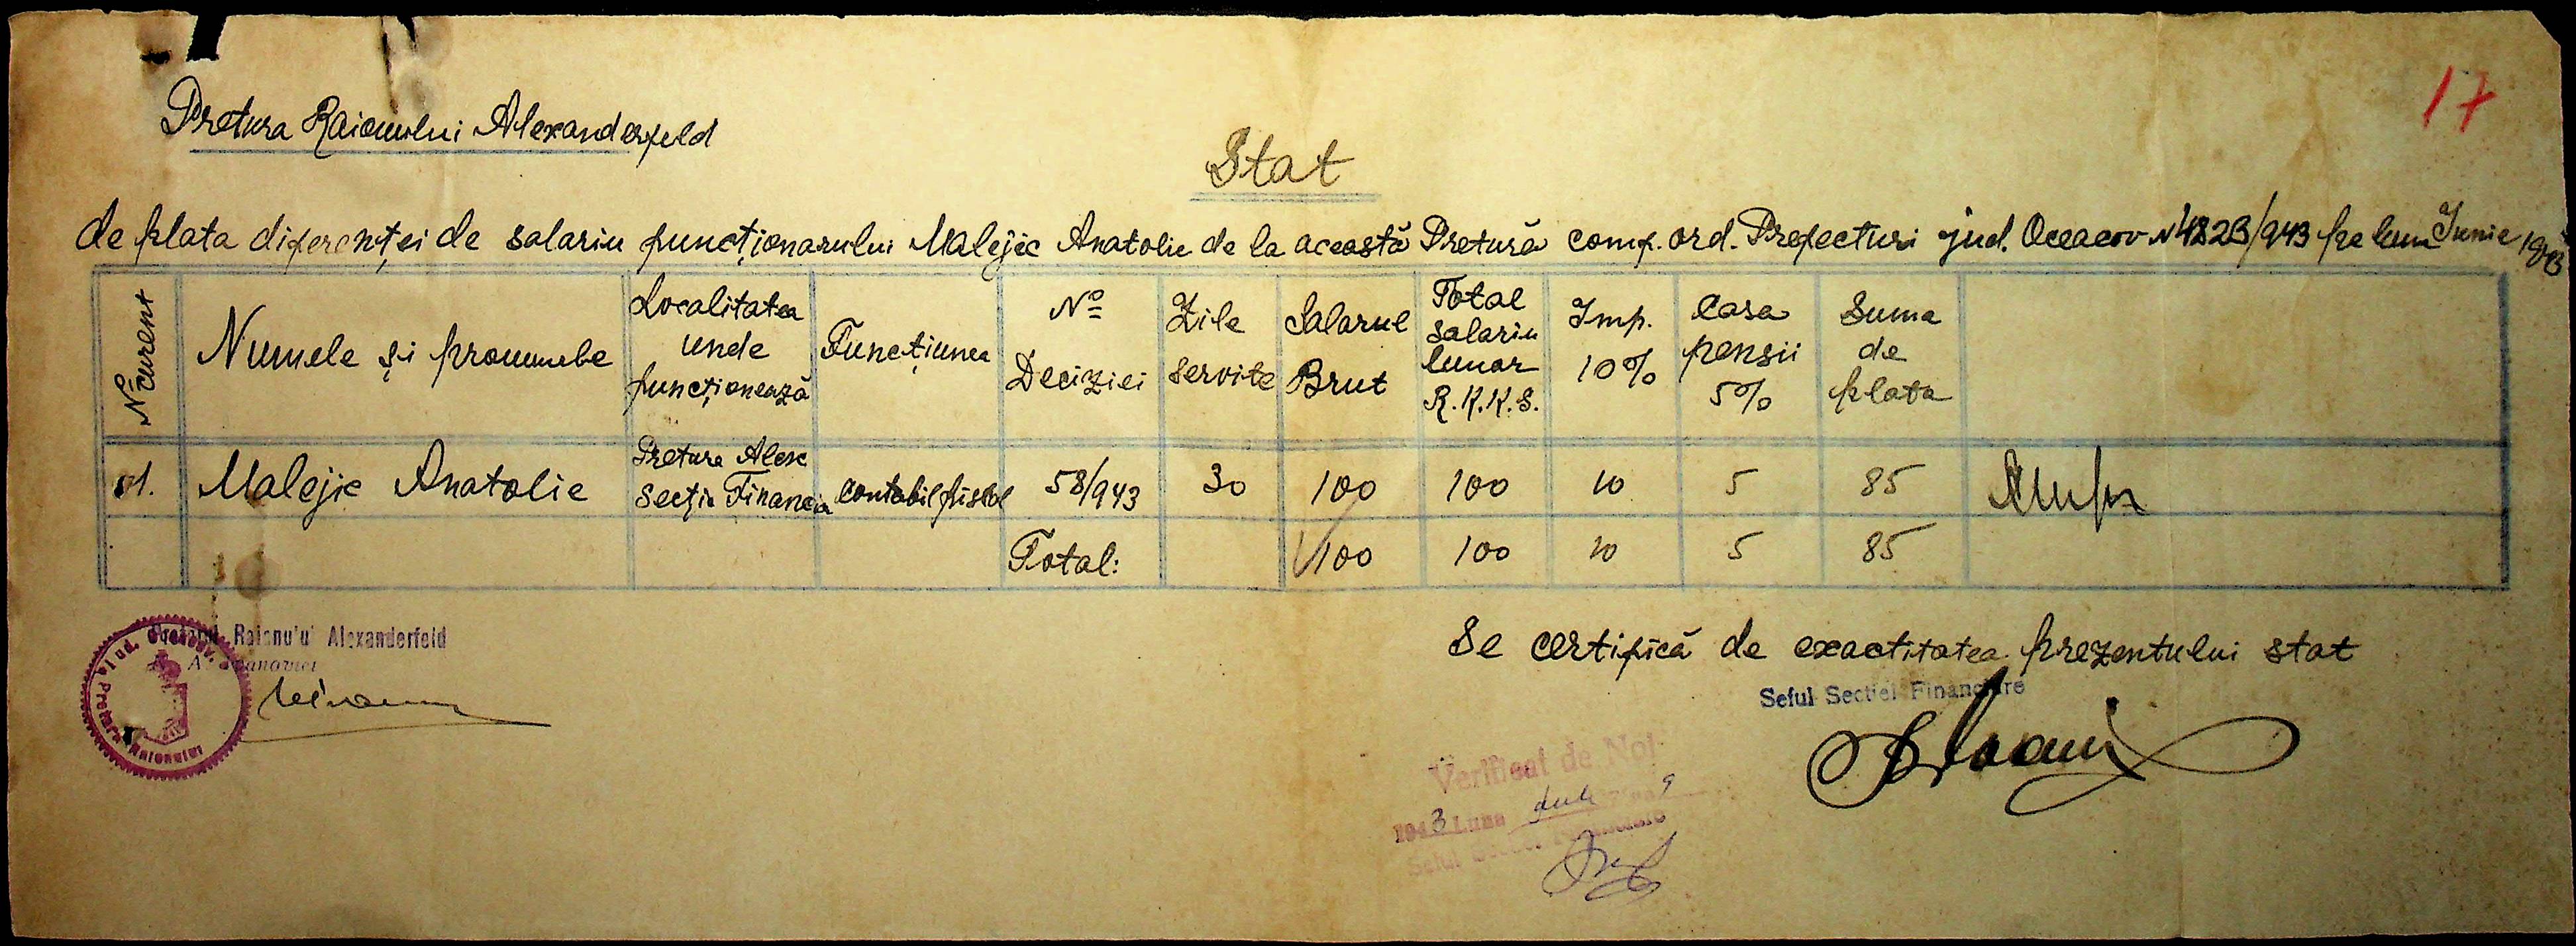 17
Pretura Raionului Alexanderfeld
Stat
de plata diferenței de salariu funcționarului Malejic Anatolie de la această Pretură conf. ord. Prefecturi jud. Oceacov N 4823/943 pe luna Iunie 1943
№ curent
Numele și pronumele
Localitatea unde funcționează
Funcțiunea
№ Deciziei
Zile servite
Salarul Brut
Total salariu lunar R.K.K.S.
Imp. 10%
Casa pensii 5%
Suma de plata
1. Malejic Anatolie Pretura Alex Secția Financia contabil fiscal 58/943 30 100 100 10 5 85
Total: 100 100 10 5 85
Pretorul Raionului Alexanderfeld
Jud. Oceacov. Pretura Raionului
Se certifică de exactitatea prezentului stat
Seful Sectiei Financiare
Verificat de Noi
1943 Luna Iulie Ziua 9
Seful Sectiei Financiare